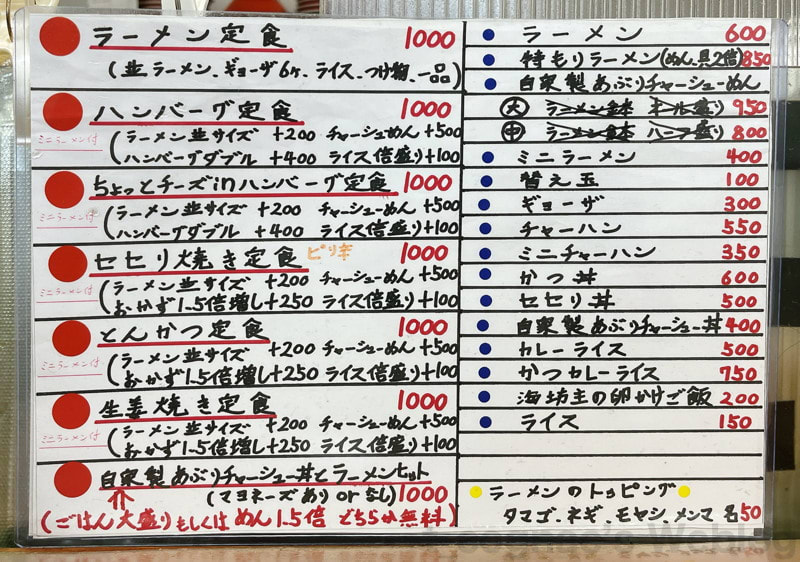 ラーメン定食 1000
(並ラーメン、ギョーザ6ヶ、ライス、つけ物、一品)
ハンバーグ定食 1000
ミニラーメン付
(ラーメン並サイズ +200 チャーシューめん +500
ハンバーグダブル +400 ライス倍盛り+100
ちょっとチーズinハンバーグ定食 1000
ミニラーメン付
(ラーメン並サイズ +200 チャーシューめん +500
ハンバーグダブル +400 ライス倍盛り+100
セセリ焼き定食 ピリ辛 1000
ミニラーメン付
(ラーメン並サイズ +200 チャーシューめん +500
おかず1.5倍増し+250 ライス倍盛り+100
とんかつ定食 1000
ミニラーメン付
(ラーメン並サイズ +200 チャーシューめん +500
おかず1.5倍増し+250 ライス倍盛り+100
生姜焼き定食 1000
ミニラーメン付
(ラーメン並サイズ +200 チャーシューめん +500
おかず1.5倍増し+250 ライス倍盛り+100
自家製あぶりチャーシュー丼とラーメンセット
(マヨネーズあり or なし) 1000
(ごはん大盛りもしくはめん1.5倍 どちらか無料)
ラーメン 600
特もりラーメン(めん、具2倍) 850
自家製あぶりチャーシューめん
大 950
中 800
ミニラーメン 400
替え玉 100
ギョーザ 300
チャーハン 550
ミニチャーハン 350
かつ丼 600
セセリ丼 500
自家製あぶりチャーシュー丼 400
カレーライス 500
かつカレーライス 750
海坊主の卵かけご飯 200
ライス 150
ラーメンのトッピング
タマゴ、ネギ、モヤシ、メンマ 各50